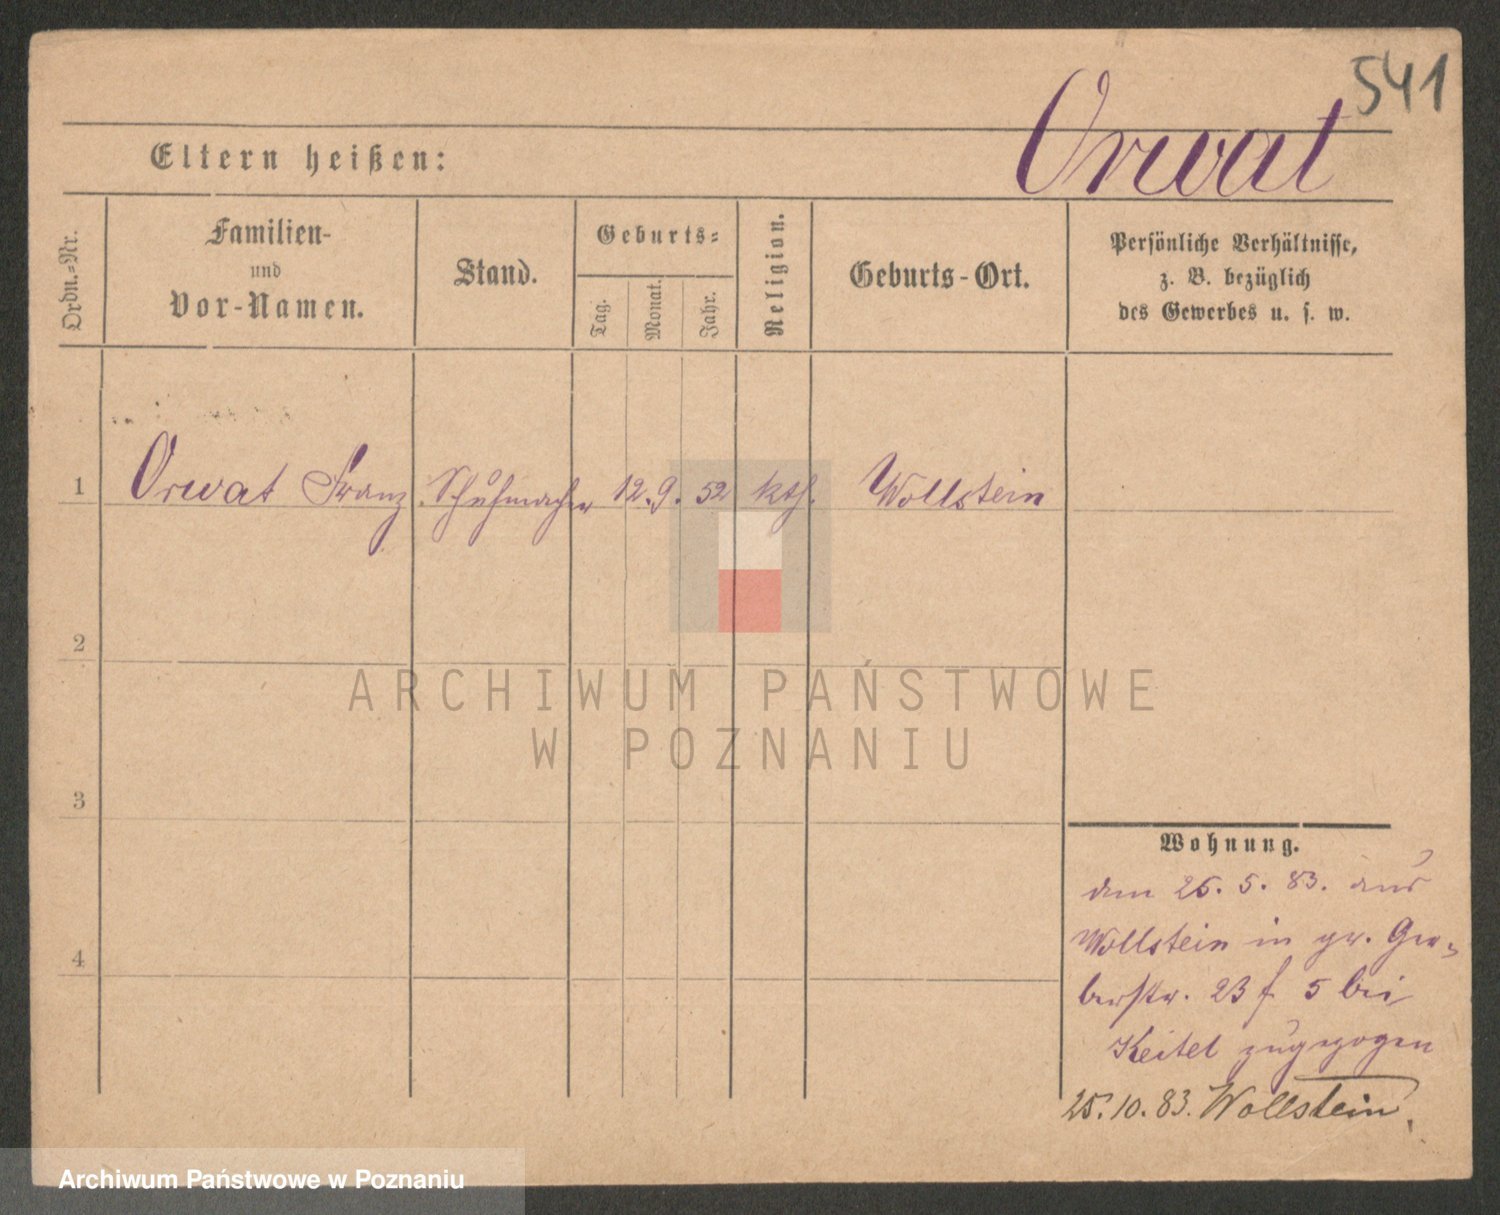 541
Orwat
Eltern heißen:
Ordn.=Nr.
Familien-
und
Vor-Namen.
Stand.
Geburts=
Tag.
Monat.
Jahr.
Religion.
Geburts-Ort.
Persönliche Verhältnisse,
z. B. bezüglich
des Gewerbes u. s. w.
1 Orwat Franz Schuhmacher 12. 9. 52 kth. Wollstein
2
3
4
ARCHIWUM PAŃSTWOWE
W POZNANIU
Wohnung.
den 26. 5. 83. aus
Wollstein in gr. Ger=
berstr. 23 f 5 bei
Keitel zugezogen
25. 10. 83. Wollstein.
Archiwum Państwowe w Poznaniu